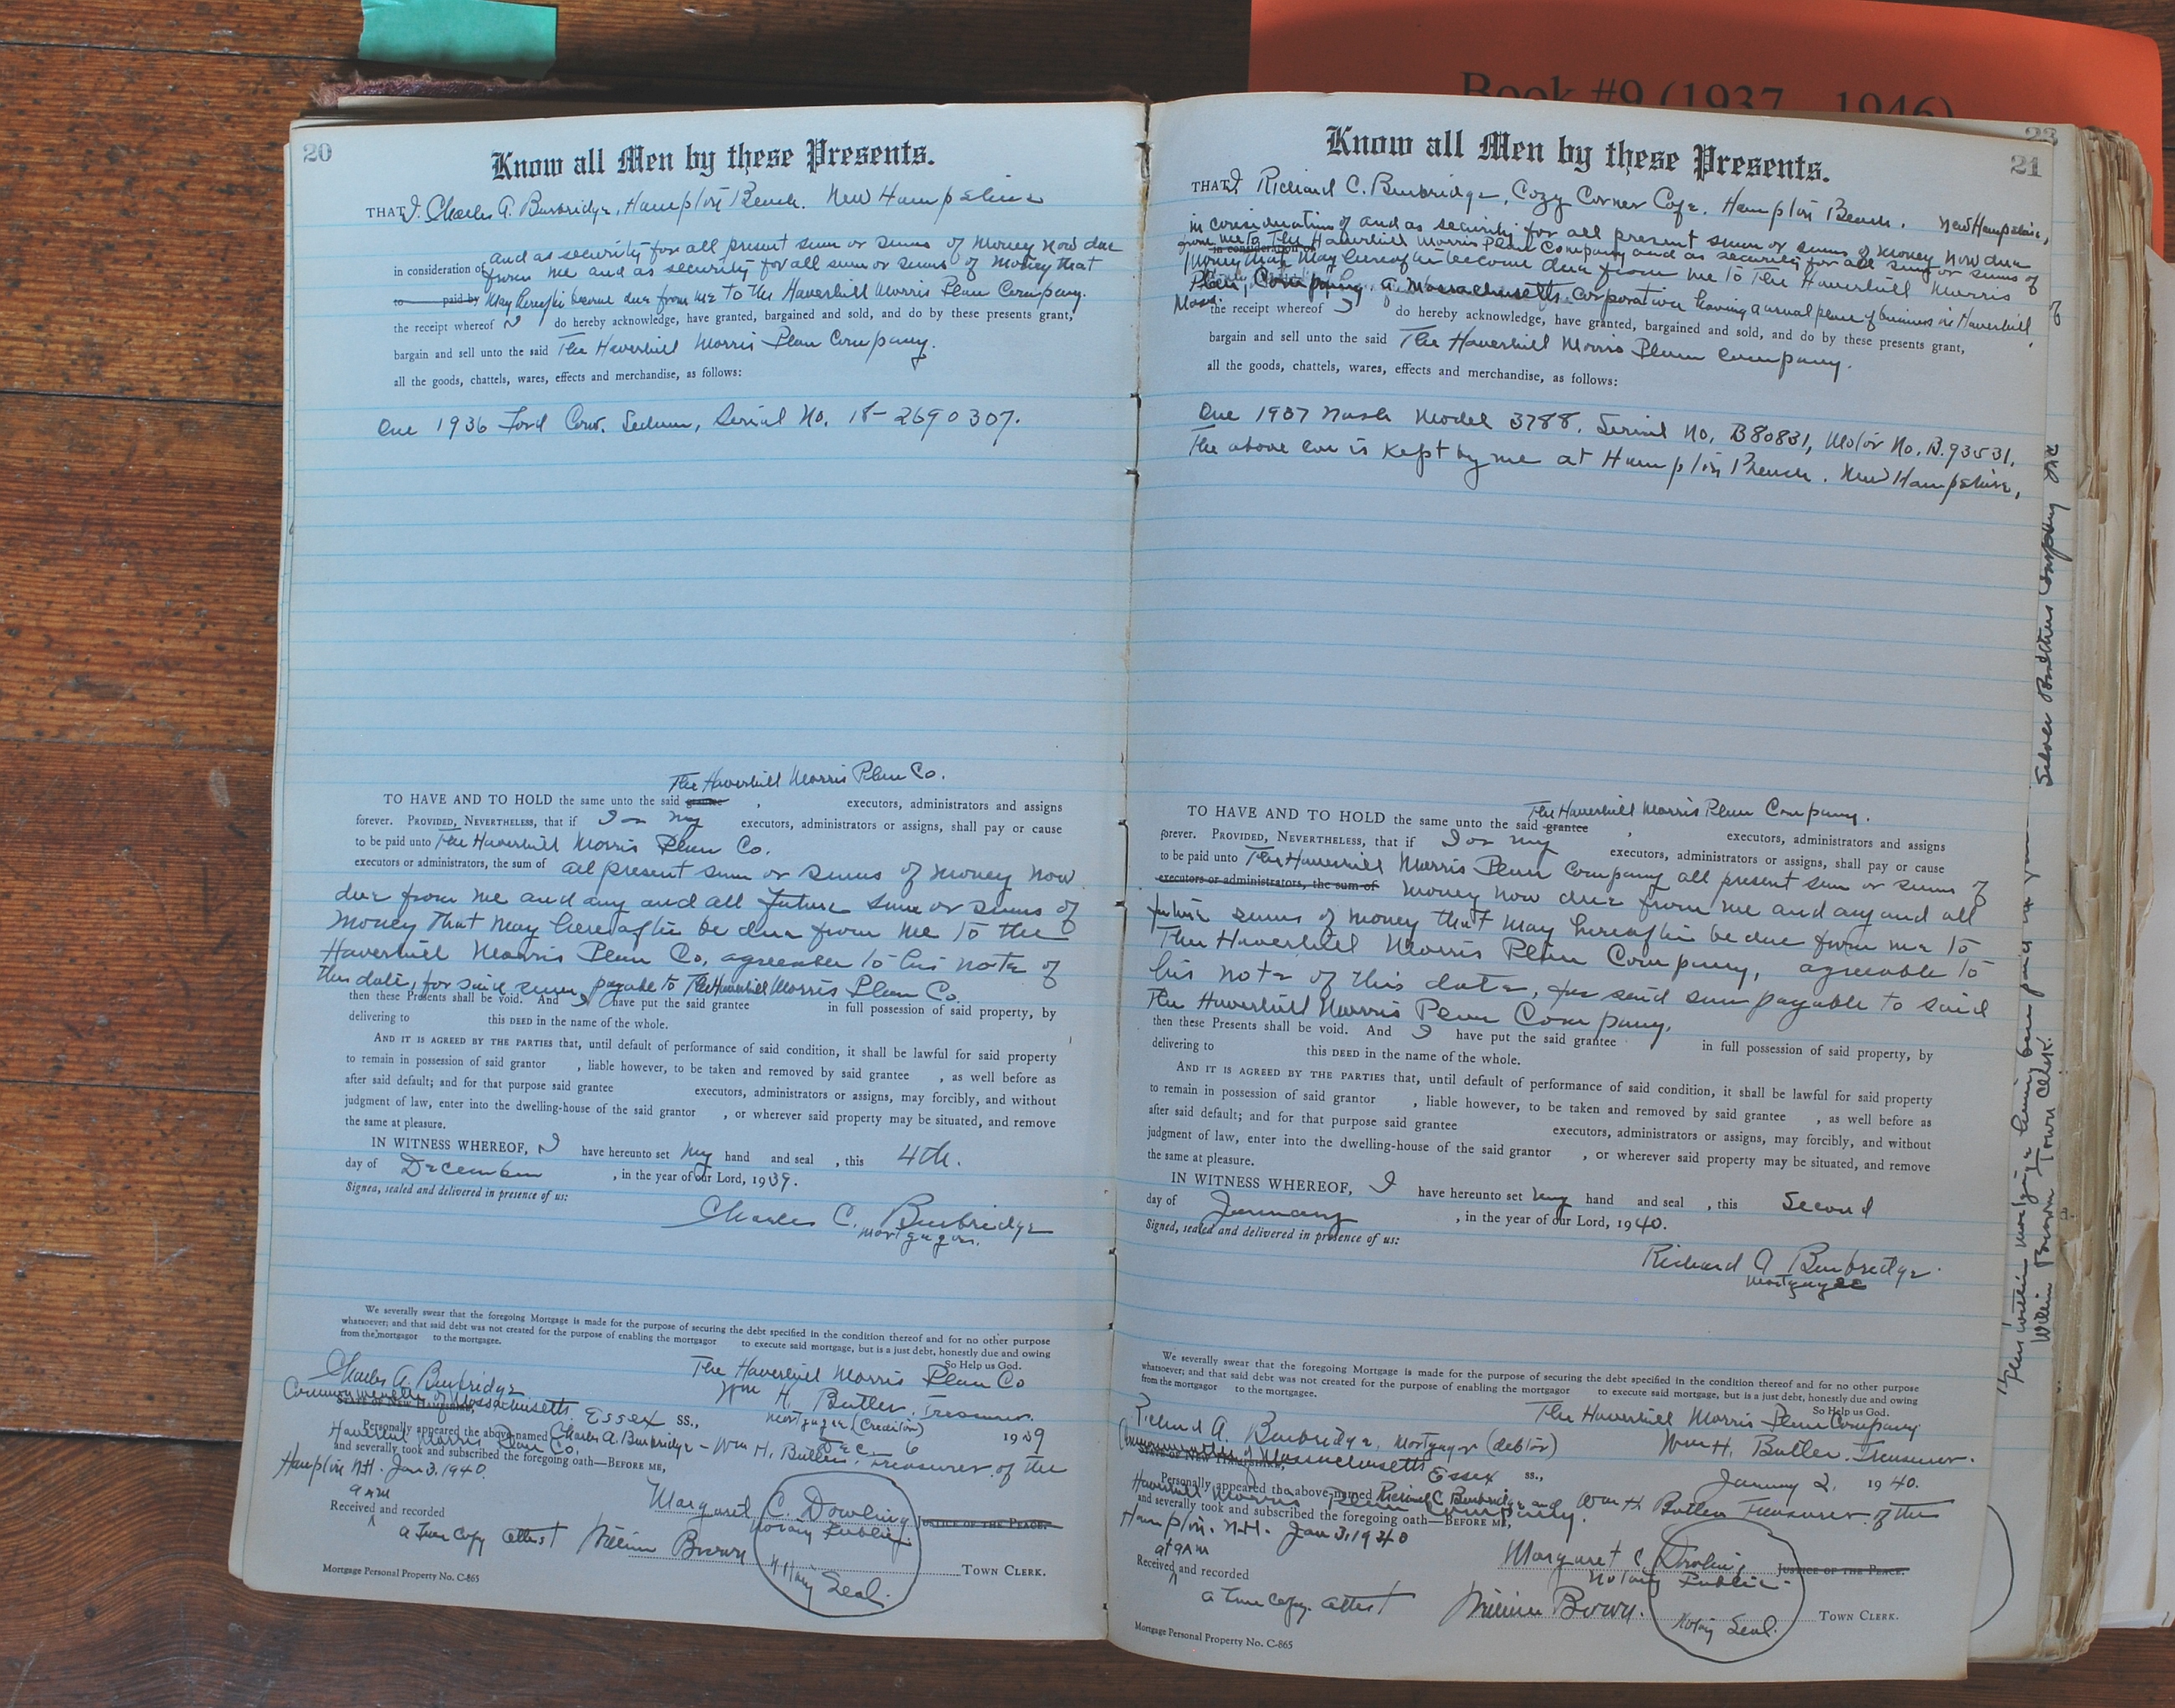 Book #9 (1937 - 1946)
20
Know all Men by these Presents.
THAT I, Charles A. Burbridge, Hampton Beach, New Hampshire
and as security for all present sum or sums of money now due
in consideration of from me and as security for all sum or sums of money that
to paid by may hereafter become due from me to the Haverhill Morris Plan Company.
the receipt whereof I do hereby acknowledge, have granted, bargained and sold, and do by these presents grant,
bargain and sell unto the said The Haverhill Morris Plan Company.
all the goods, chattels, wares, effects and merchandise, as follows:
One 1936 Ford Conv. Sedan, Serial No. 18-2690307.
The Haverhill Morris Plan Co.
TO HAVE AND TO HOLD the same unto the said grantee , executors, administrators and assigns
forever. PROVIDED, NEVERTHELESS, that if I or my executors, administrators or assigns, shall pay or cause
to be paid unto The Haverhill Morris Plan Co.
executors or administrators, the sum of all present sum or sums of money now
due from me and any and all future sum or sums of
money that may hereafter be due from me to the
Haverhill Morris Plan Co, agreeable to his note of
this date, for said sum payable to The Haverhill Morris Plan Co.
then these Presents shall be void. And I have put the said grantee in full possession of said property, by
delivering to this DEED in the name of the whole.
AND IT IS AGREED BY THE PARTIES that, until default of performance of said condition, it shall be lawful for said property
to remain in possession of said grantor , liable however, to be taken and removed by said grantee , as well before as
after said default; and for that purpose said grantee executors, administrators or assigns, may forcibly, and without
judgment of law, enter into the dwelling-house of the said grantor , or wherever said property may be situated, and remove
the same at pleasure.
IN WITNESS WHEREOF, I have hereunto set my hand and seal , this 4th.
day of December , in the year of our Lord, 1939.
Signed, sealed and delivered in presence of us:
Charles C. Burbridge
Mortgagor.
We severally swear that the foregoing Mortgage is made for the purpose of securing the debt specified in the condition thereof and for no other purpose
whatsoever; and that said debt was not created for the purpose of enabling the mortgagor to execute said mortgage, but is a just debt, honestly due and owing
from the mortgagor to the mortgagee. So Help us God.
Charles A. Burbridge The Haverhill Morris Plan Co
Wm H. Butler. Treasurer.
Commonwealth of Massachusetts Mortgagee (Creditor)
STATE OF NEW HAMPSHIRE, Essex ss., Dec. 6 1939
Personally appeared the above named Charles A. Burbridge - Wm H. Butler, Treasurer of the
Haverhill Morris Plan Co.
and severally took and subscribed the foregoing oath—BEFORE ME,
Hampton N.H. Jan 3. 1940.
9 AM
Received and recorded Margaret C. Dowling JUSTICE OF THE PEACE.
Notary Public
a True Copy Attest William Brown TOWN CLERK.
Notary Seal.
Mortgage Personal Property No. C-865
23
21
Know all Men by these Presents.
THAT I, Richard C. Burbridge, Cozy Corner Cafe, Hampton Beach, New Hampshire,
in consideration of and as security for all present sum or sums of money now due
from me to The Haverhill Morris Plan Company and as security for all sum or sums of
in consideration of
money that may hereafter become due from me to The Haverhill Morris
Plan, Company, a Massachusetts Corporation having a usual place of business in Haverhill,
Mass.
the receipt whereof I do hereby acknowledge, have granted, bargained and sold, and do by these presents grant,
bargain and sell unto the said The Haverhill Morris Plan Company.
all the goods, chattels, wares, effects and merchandise, as follows:
One 1937 Nash Model 3788, Serial No. B80831, Motor No. B.93531.
The above car is kept by me at Hampton Beach, New Hampshire,
The Haverhill Morris Plan Company.
TO HAVE AND TO HOLD the same unto the said grantee , executors, administrators and assigns
forever. PROVIDED, NEVERTHELESS, that if I or my executors, administrators or assigns, shall pay or cause
to be paid unto The Haverhill Morris Plan Company all present sum or sums of
executors or administrators, the sum of money now due from me and any and all
future sums of money that may hereafter be due from me to
The Haverhill Morris Plan Company, agreeable to
his note of this date, for said sum payable to said
The Haverhill Morris Plan Company.
then these Presents shall be void. And I have put the said grantee in full possession of said property, by
delivering to this DEED in the name of the whole.
AND IT IS AGREED BY THE PARTIES that, until default of performance of said condition, it shall be lawful for said property
to remain in possession of said grantor , liable however, to be taken and removed by said grantee , as well before as
after said default; and for that purpose said grantee executors, administrators or assigns, may forcibly, and without
judgment of law, enter into the dwelling-house of the said grantor , or wherever said property may be situated, and remove
the same at pleasure.
IN WITNESS WHEREOF, I have hereunto set my hand and seal , this Second
day of January , in the year of our Lord, 1940.
Signed, sealed and delivered in presence of us:
Richard A Burbridge
Mortgagee
We severally swear that the foregoing Mortgage is made for the purpose of securing the debt specified in the condition thereof and for no other purpose
whatsoever; and that said debt was not created for the purpose of enabling the mortgagor to execute said mortgage, but is a just debt, honestly due and owing
from the mortgagor to the mortgagee. So Help us God.
The Haverhill Morris Plan Company
Richard A. Burbridge, Mortgagor (debtor) Wm H. Butler. Treasurer.
Commonwealth of Massachusetts
STATE OF NEW HAMPSHIRE, Essex ss., January 2, 1940.
Personally appeared the above named Richard C Burbridge and Wm H Butler Treasurer of the
Haverhill Morris Plan Company.
and severally took and subscribed the foregoing oath—BEFORE ME,
Hampton. N.H. Jan 3, 1940
at 9 AM
Received and recorded Margaret C. Dowling JUSTICE OF THE PEACE.
Notary Public
a True Copy. Attest William Brown. TOWN CLERK.
Notary Seal.
Mortgage Personal Property No. C-865
"This within mortgage having been paid in
William Brown Town Clerk.
Brothers Company Inc